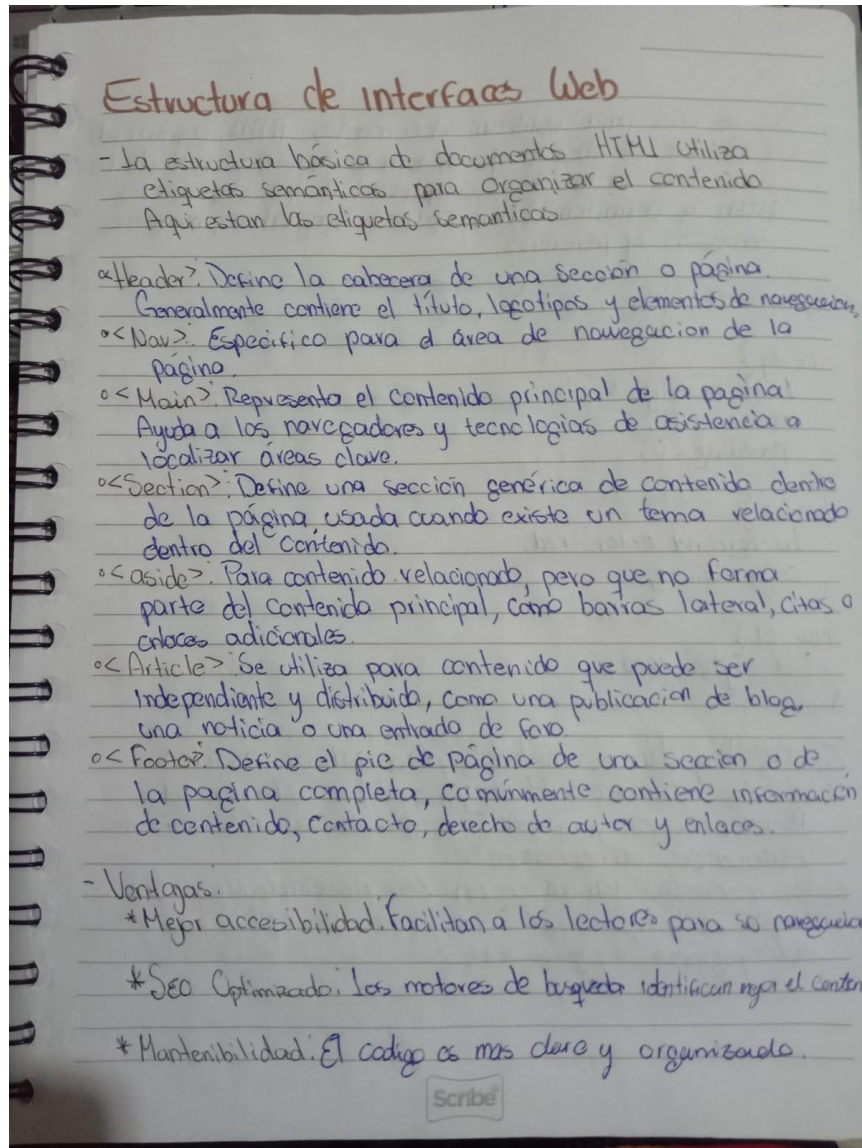 Estructura de interfaces Web
- La estructura básica de documentos HTML utiliza
etiquetas semánticas para organizar el contenido
Aqui estan las etiquetas semanticas
<Header>: Define la cabecera de una sección o página.
Generalmente contiene el título, logotipos y elementos de navegacion,
<Nav>: Especifico para el área de navegacion de la
página.
<Main>: Represento el contenido principal de la pagina
Ayuda a los navegadores y tecnologias de asistencia a
localizar áreas clave.
<Section>: Define una sección genérica de contenido dentro
de la página, usada cuando existe un tema relacionado
dentro del contenido.
<aside>: Para contenido relacionado, pero que no forma
parte del contenido principal, como barras lateral, citas o
enlaces adicionales.
<Article>: Se utiliza para contenido que puede ser
Independiente y distribuido, como una publicacion de blog,
una noticia o una entrada de foro
<Footer>: Define el pie de página de una seccion o de
la pagina completa, comúnmente contiene información
de contenido, contacto, derecho de autor y enlaces.
- Ventajas.
* Mejor accesibilidad. Facilitan a los lectores para so navegacion
* Seo Optimizado: Los motores de busqueda identifican mejor el conten
* Mantenibilidad: El codigo es mas claro y organizado.
Scribe